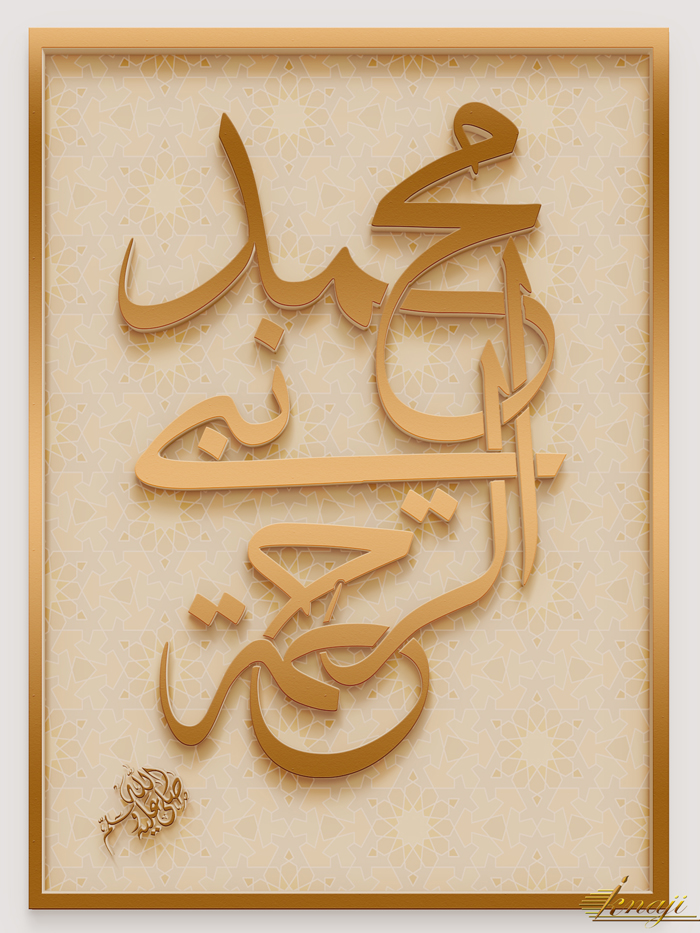 محمد
نبي
الرحمة
صلى الله عليه وسلم
Jenaji